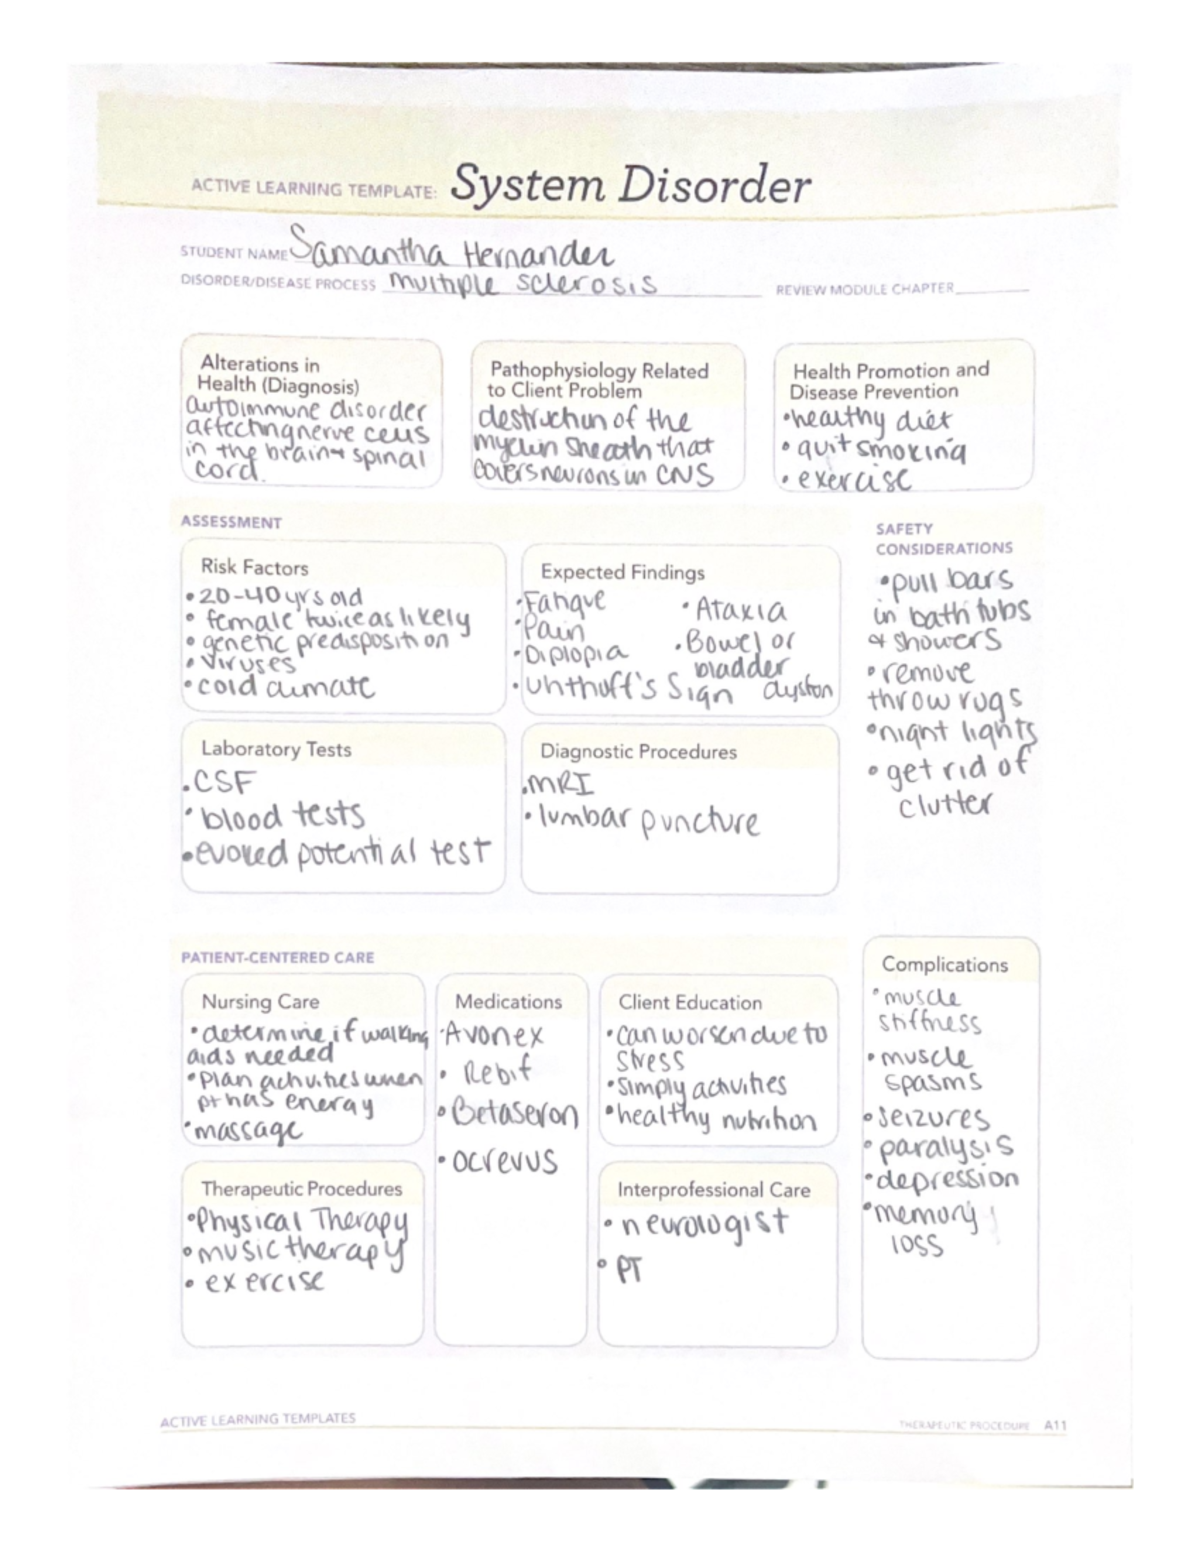 ACTIVE LEARNING TEMPLATE: System Disorder
STUDENT NAME Samantha Hernander
DISORDER/DISEASE PROCESS multiple sclerosis REVIEW MODULE CHAPTER
Alterations in
Health (Diagnosis)
autoimmune disorder
affecting nerve cells
in the brain + spinal
cord.
Pathophysiology Related
to Client Problem
destruction of the
myelin sheath that
covers neurons in CNS
Health Promotion and
Disease Prevention
• healthy diet
• quit smoking
• exercise
ASSESSMENT
Risk Factors
• 20-40 yrs old
• female twice as likely
• genetic predisposition
• viruses
• cold climate
Expected Findings
• Fatigue
• Pain
• Diplopia
• Uhthoff's Sign
• Ataxia
• Bowel or
bladder
dysfon
SAFETY
CONSIDERATIONS
• pull bars
in bath tubs
& showers
• remove
throw rugs
• night lights
• get rid of
clutter
Laboratory Tests
• CSF
• blood tests
• evoked potential test
Diagnostic Procedures
• MRI
• lumbar puncture
PATIENT-CENTERED CARE
Nursing Care
• determine if walking
aids needed
• Plan activities when
pt has energy
• massage
Medications
• Avonex
• Rebif
• Betaseron
• ocrevus
Client Education
• can worsen due to
stress
• Simply activities
• healthy nutrition
Complications
• muscle
stiffness
• muscle
spasms
• seizures
• paralysis
• depression
• memory
loss
Therapeutic Procedures
• Physical Therapy
• music therapy
• exercise
Interprofessional Care
• neurologist
• PT
ACTIVE LEARNING TEMPLATES
THERAPEUTIC PROCEDURE A11